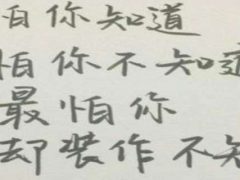 怕你知道
怕你不知道
最怕你
却装作不知